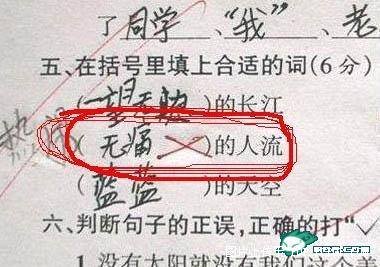 了同学、“我”、老
五、在括号里填上合适的词(6分)
(一望无边)的长江
(无痛)的人流
(蓝蓝)的天空
六、判断句子的正误,正确的打“✓
1.没有太阳就没有我们这个美